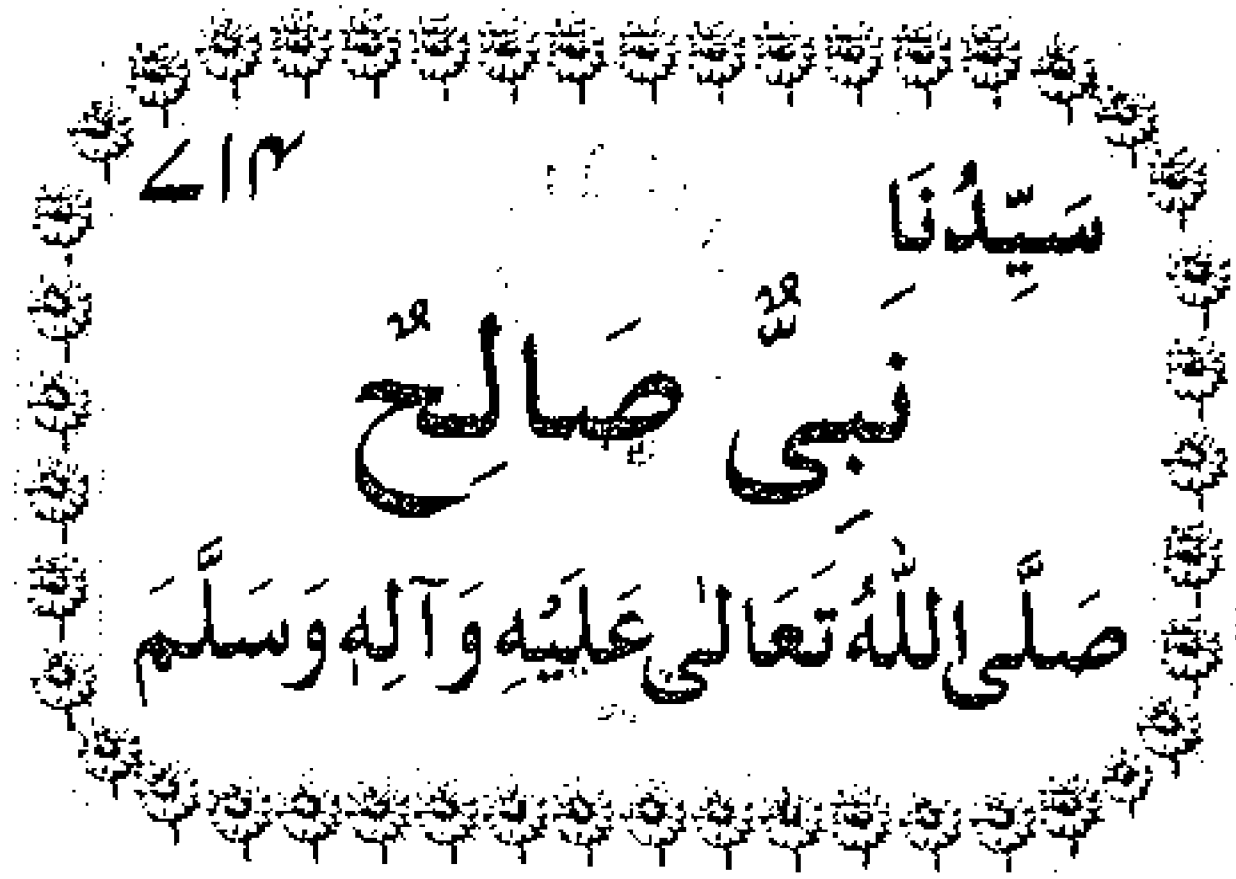 سَيِّدُنَا ۷۱۴
نَبِىٌّ صَالِحٌ
صَلَّى اللّٰهُ تَعَالىٰ عَلَيْهِ وَآلِهٖ وَسَلَّمَ